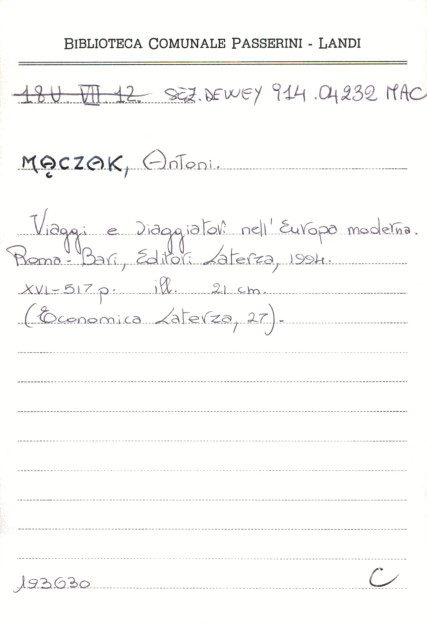 BIBLIOTECA COMUNALE PASSERINI - LANDI
18U. VII. 12. SEZ. DEWEY 914.04232 MAC
MĄCZAK, Antoni.
Viaggi e viaggiatori nell'Europa moderna.
Roma - Bari, Editori Laterza, 1994.
XVI-517 p. ill. 21 cm.
(Economica Laterza, 27).
193630 C